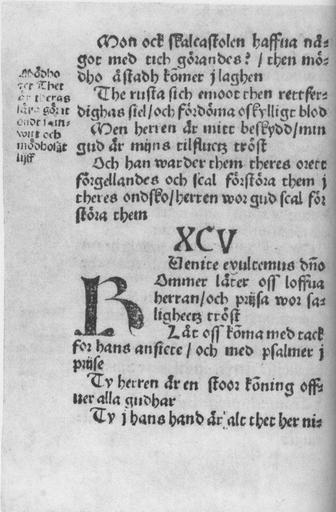 Mon ock skalcastolen haffua nå-
got med tich görandes? / then mö-
dho åstadh kōmer j laghen
The rusta sich emoot then rettfer-
dighas siel / och fördöma oskylligt blod
Men herren är mitt beskydd / min
gud är mijns tilfluctz tröst
Och han warder them theres orett
förgellandes och scal förstöra them j
theres ondsko / herren wor gud scal för
störa them
Mödho
Thet
är theras
som göra
och
XCV
Venite exultemus dño
KOmmer låter oss loffua
herran / och prijsa wor sa-
lighetz tröst
Låt oss kōma med tack
for hans ansicte / och med psalmer j
prijse
Ty herren är en stoor kōning off-
uer alla gudhar
Ty j hans hand är alt thet her ni-